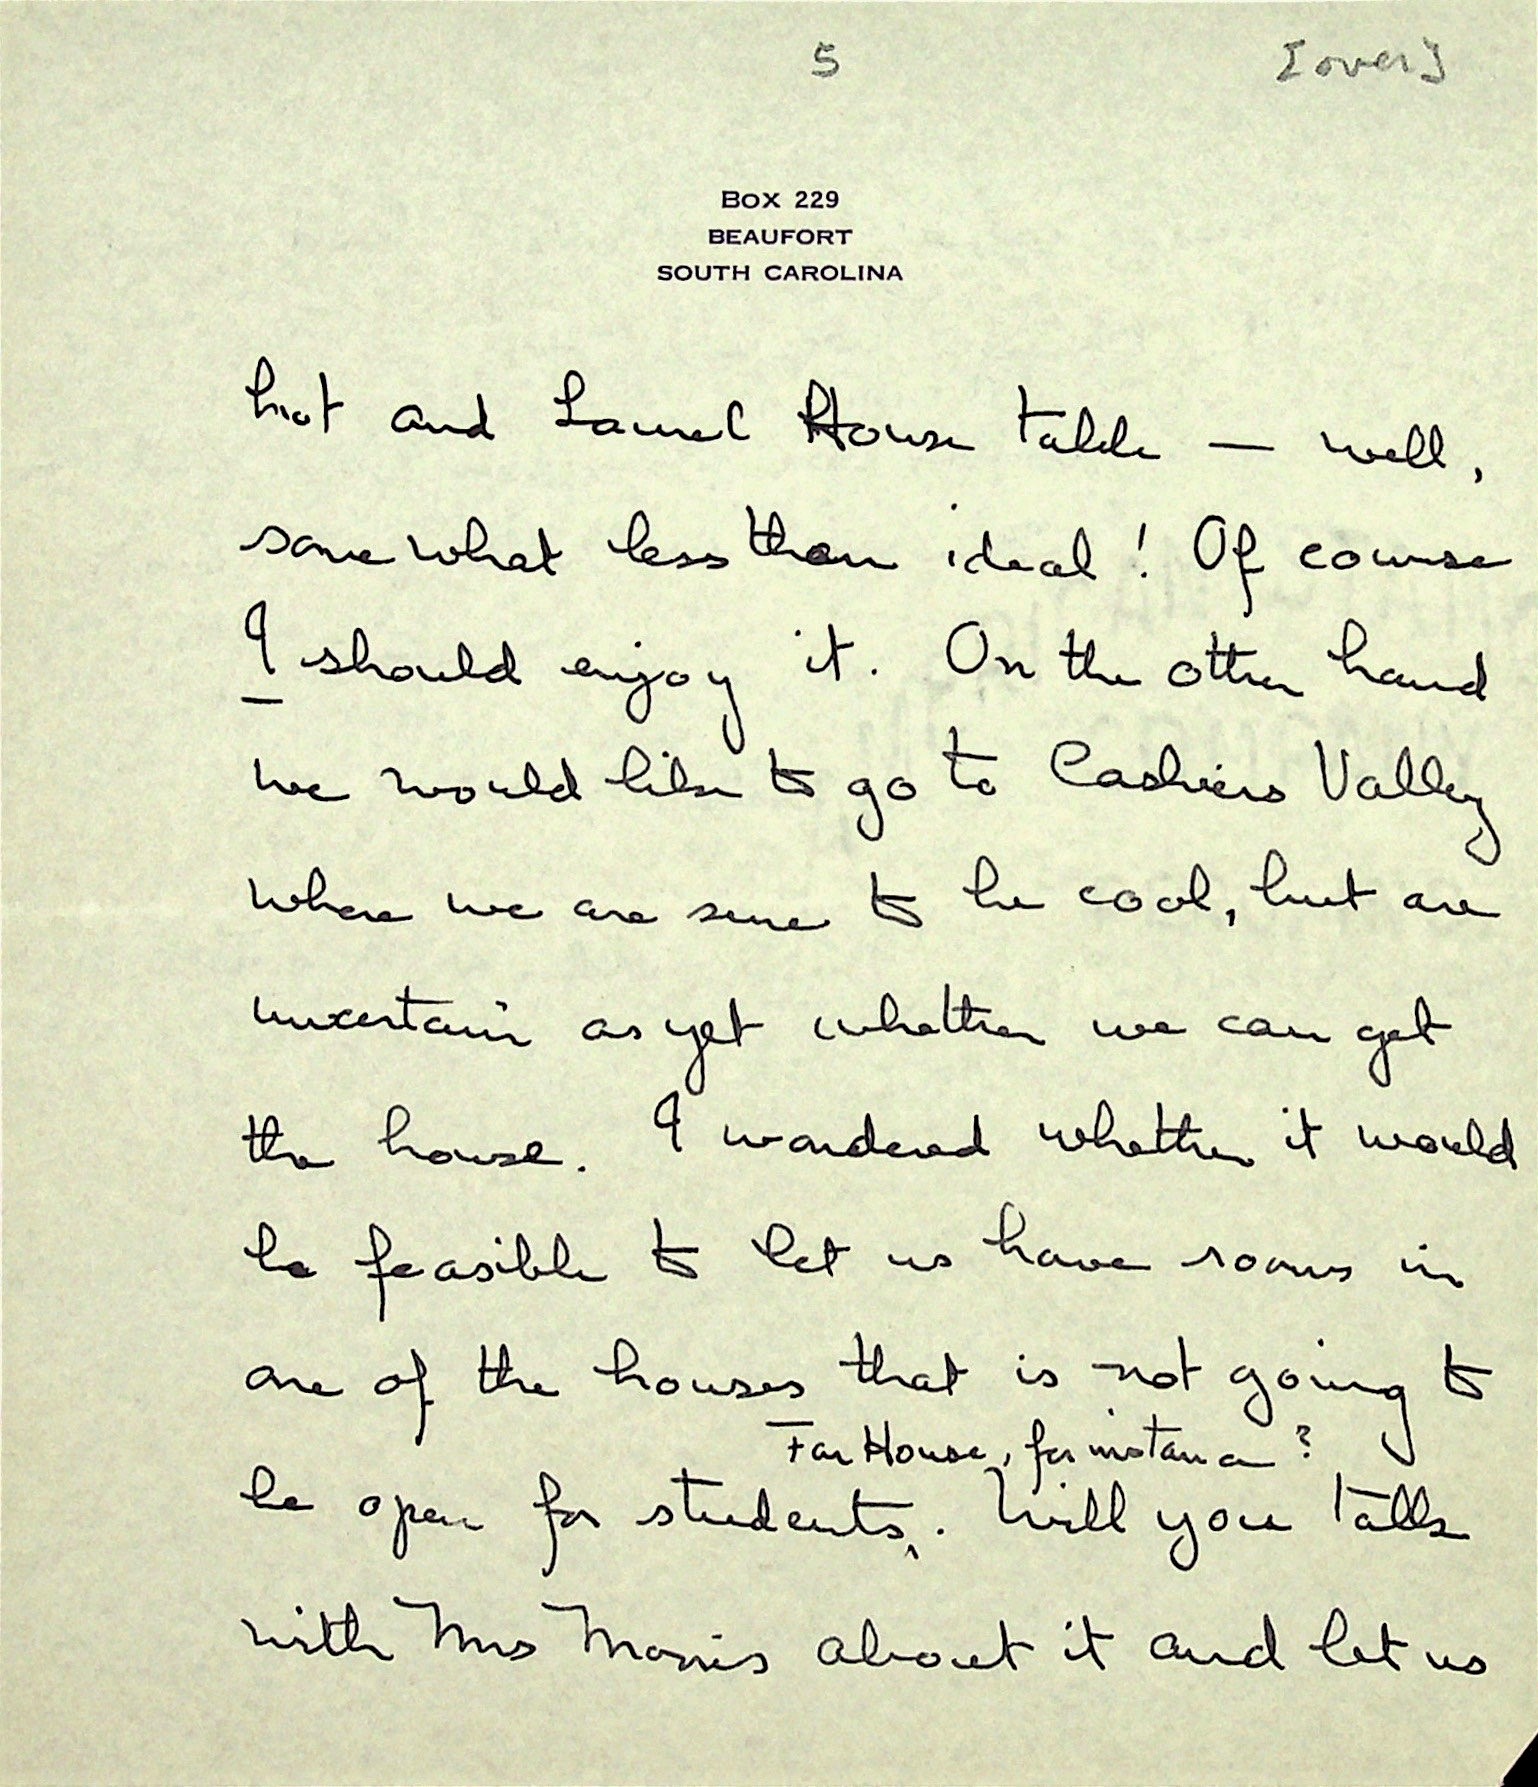 5 [over]
BOX 229
BEAUFORT
SOUTH CAROLINA
hot and Laurel House table — well,
somewhat less than ideal! Of course
I should enjoy it. On the other hand
we would like to go to Cashiers Valley
where we are sure to be cool, but are
uncertain as yet whether we can get
the house. I wondered whether it would
be feasible to let us have rooms in
one of the houses that is not going to
Far House, for instance?
be open for students. Will you talk
with Mrs Morris about it and let us